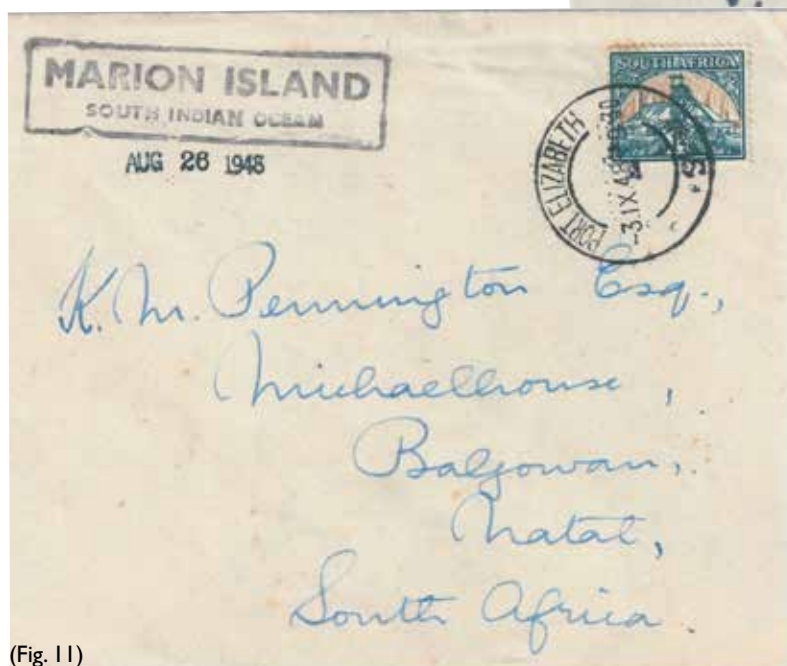 MARION ISLAND
SOUTH INDIAN OCEAN
AUG 26 1948
SOUTH AFRICA
PORT ELIZABETH
-3 IX 48
K. M. Pennington Esq.,
Michaelhouse,
Balgowan,
Natal,
South Africa.
(Fig. 11)